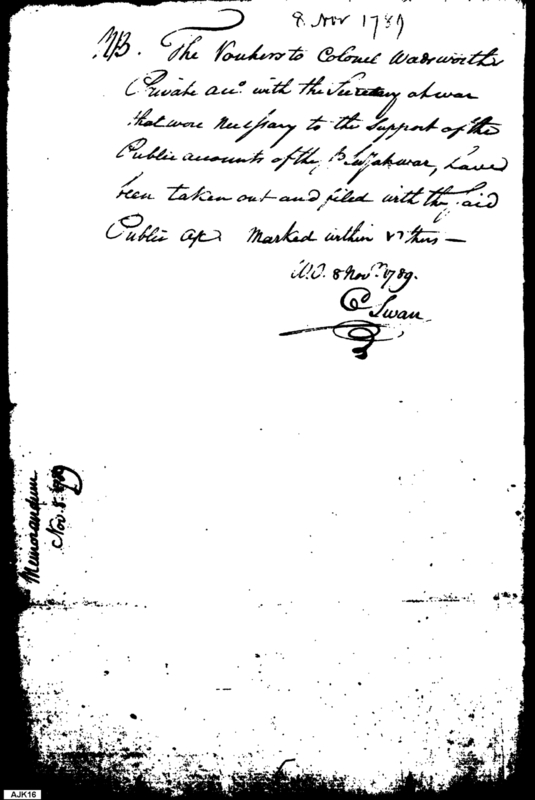 8 Nov 1789
NB. The Vouchers to Colonel Wadsworths
Private acco. with the Secretary at war
that were necessary to the support of the
Public accounts of the Secy at war, have
been taken out and filed with the said
Public a/cs marked within &
W.O. 8 Novr. 1789.
C Swan
Memorandum
Nov. 8. 1789
AJK16